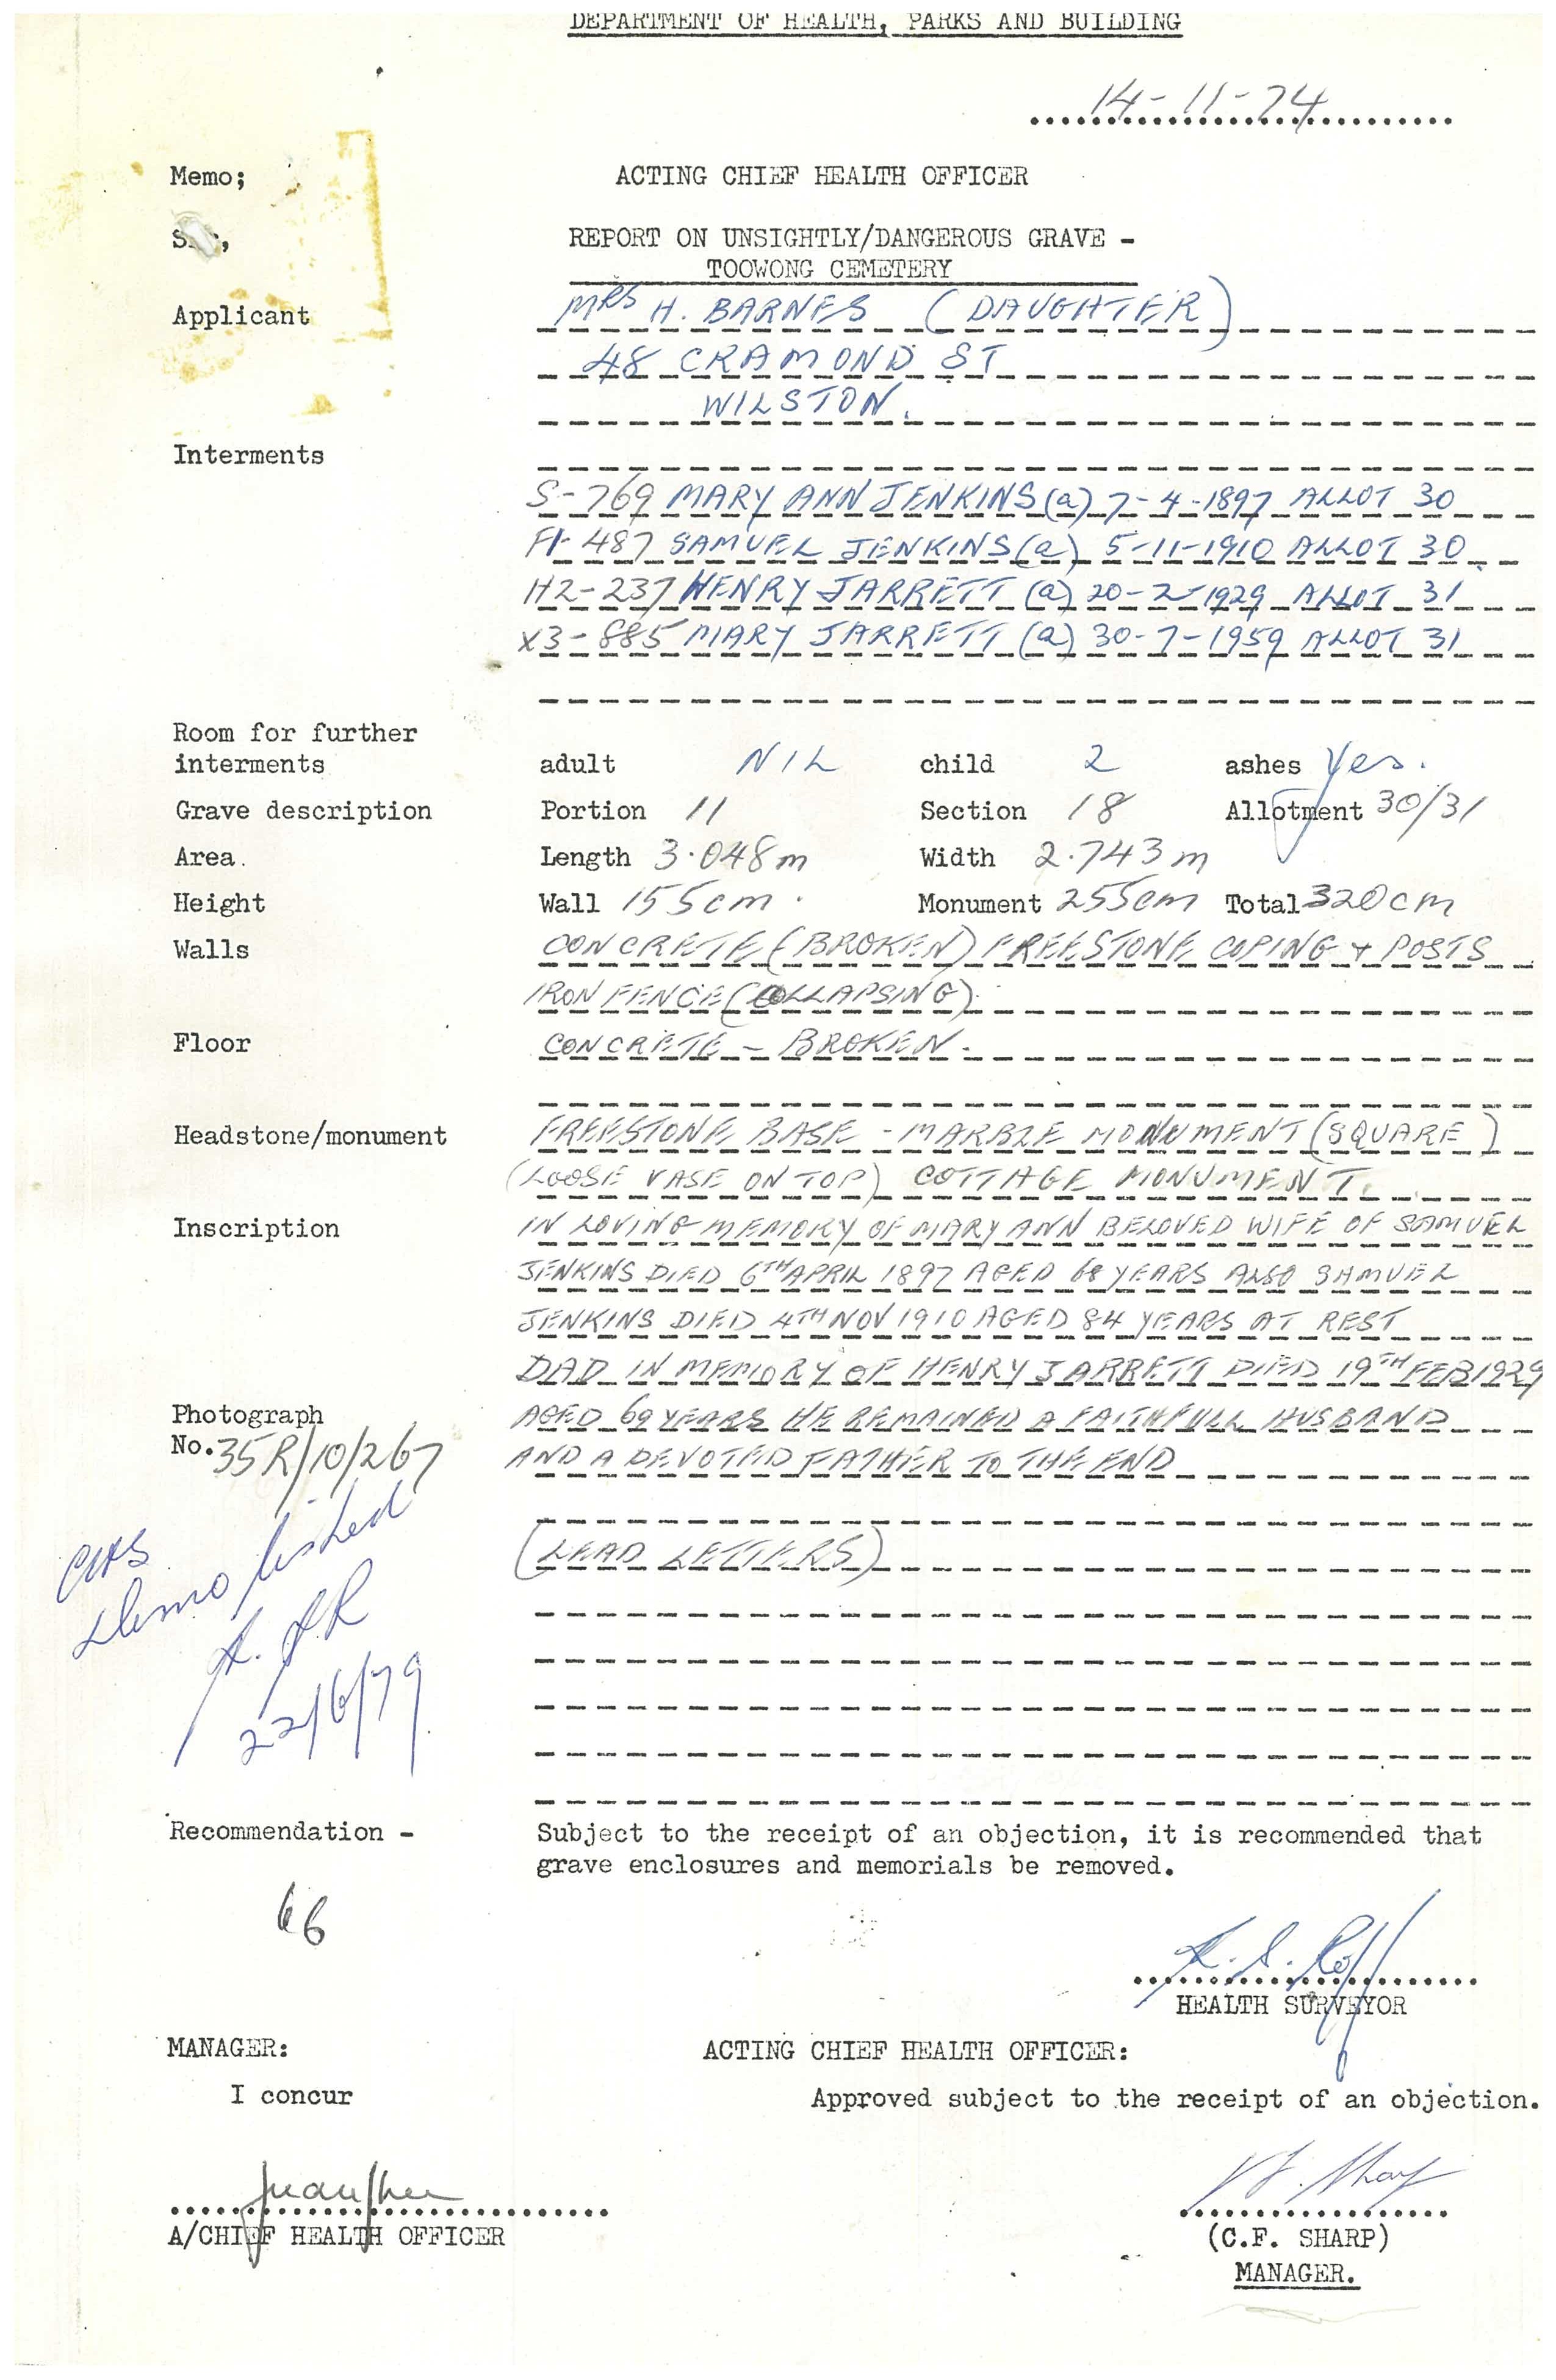 DEPARTMENT OF HEALTH, PARKS AND BUILDING
14-11-74
Memo;
ACTING CHIEF HEALTH OFFICER
REPORT ON UNSIGHTLY/DANGEROUS GRAVE -
TOOWONG CEMETERY
Applicant MRS H. BARNES (DAUGHTER)
48 CRAMOND ST
WILSTON.
Interments
S-769 MARY ANN JENKINS (a) 7-4-1897 ALLOT 30
F1-487 SAMUEL JENKINS (a) 5-11-1910 ALLOT 30
H2-237 HENRY JARRETT (a) 20-2-1929 ALLOT 31
X3-885 MARY JARRETT (a) 30-7-1959 ALLOT 31
Room for further
interments adult NIL child 2 ashes Yes.
Grave description Portion 11 Section 18 Allotment 30/31
Area. Length 3.048m Width 2.743m
Height Wall 155cm. Monument 255cm Total 320cm
Walls CONCRETE (BROKEN) FREESTONE COPING + POSTS
IRON FENCE (COLLAPSING).
Floor CONCRETE - BROKEN.
Headstone/monument FREESTONE BASE - MARBLE MONUMENT (SQUARE)
(LOOSE VASE ON TOP) COTTAGE MONUMENT.
Inscription IN LOVING MEMORY OF MARY ANN BELOVED WIFE OF SAMUEL
JENKINS DIED 6TH APRIL 1897 AGED 68 YEARS ALSO SAMUEL
JENKINS DIED 4TH NOV 1910 AGED 84 YEARS AT REST
DAD IN MEMORY OF HENRY JARRETT DIED 19TH FEB 1929
Photograph AGED 69 YEARS HE REMAINED A FAITHFULL HUSBAND
No. 35R/10/267 AND A DEVOTED FATHER TO THE END
(LEAD LETTERS)
22/6/79
Recommendation - Subject to the receipt of an objection, it is recommended that
grave enclosures and memorials be removed.
66
HEALTH SURVEYOR
MANAGER: ACTING CHIEF HEALTH OFFICER:
I concur Approved subject to the receipt of an objection.
A/CHIEF HEALTH OFFICER (C.F. SHARP)
MANAGER.